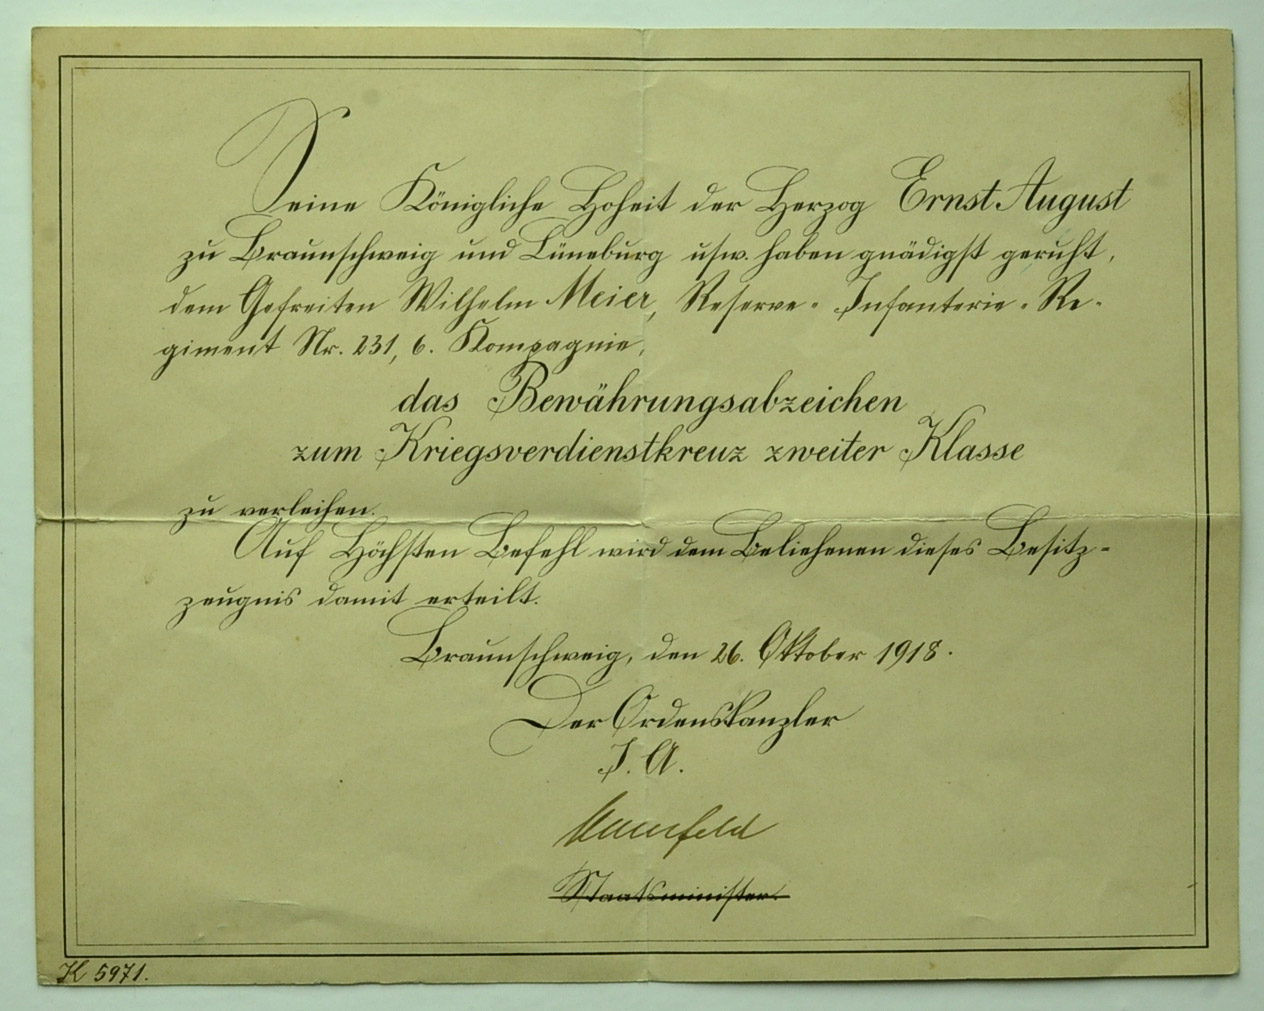 Seine Königliche Hoheit der Herzog Ernst August
zu Braunschweig und Lüneburg usw. haben gnädigst geruht,
dem Gefreiten Wilhelm Meier, Reserve-Infanterie-Re-
giment Nr. 231, 6. Kompagnie,
das Bewährungsabzeichen
zum Kriegsverdienstkreuz zweiter Klasse
zu verleihen.
Auf Höchsten Befehl wird dem Beliehenen dieses Besitz-
zeugnis damit erteilt.
Braunschweig, den 26. Oktober 1918.
Der Ordenskanzler
I. A.
Staatsminister.
K 5971.